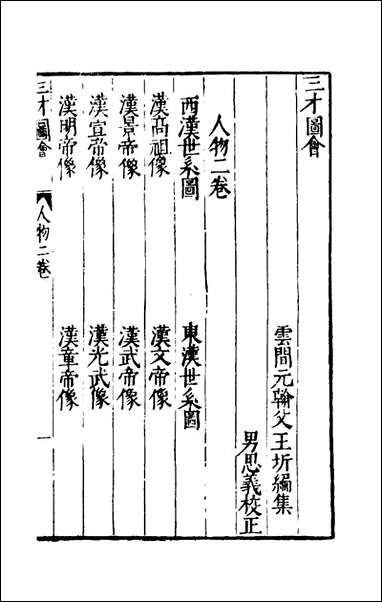 三才圖會
雲間元翰父王圻編集
男思義校正
人物二卷
西漢世系圖
東漢世系圖
漢高祖像
漢文帝像
漢景帝像
漢武帝像
漢宣帝像
漢光武像
漢明帝像
漢章帝像
三才圖會
人物二卷
一